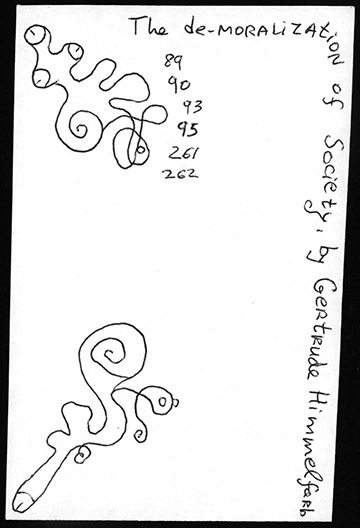 The de-MORALIZATION of Society, by GERTRUDE Himmelfarb
89
90
93
95
261
262